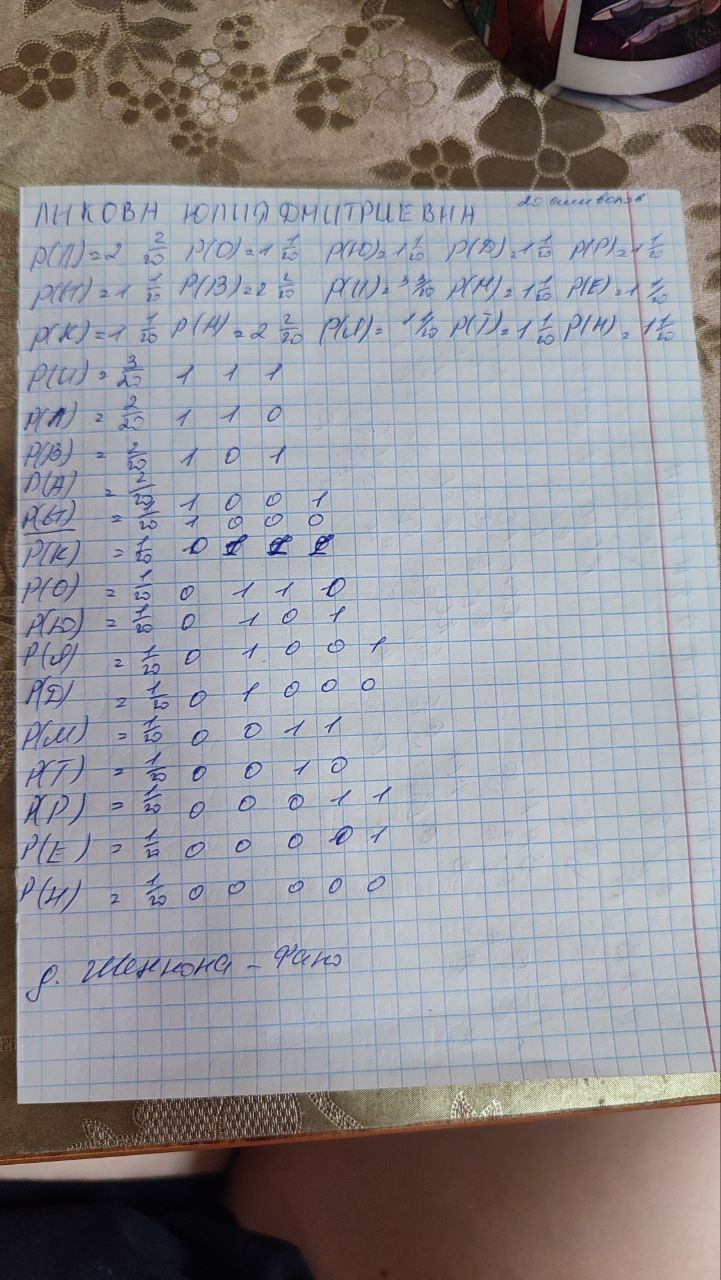 ЛЫКОВА ЮЛИЯ ДМИТРИЕВНА 20 символов
P(Л)=2 2/20 P(О)=1 1/20 P(Ю)=1 1/20 P(Д)=1 1/20 P(Р)=1 1/20
P(Ы)=1 1/20 P(В)=2 2/20 P(И)=3 3/20 P(М)=1 1/20 P(Е)=1 1/20
P(К)=1 1/20 P(А)=2 2/20 P(Я)=1 1/20 P(Т)=1 1/20 P(Н)=1 1/20
P(И) = 3/20 1 1 1
P(Л) = 2/20 1 1 0
P(В) = 2/20 1 0 1
P(А) = 2/20 1 0 0 1
P(Ы) = 1/20 1 0 0 0
P(К) = 1/20 0 1 1 1
P(О) = 1/20 0 1 1 0
P(Ю) = 1/20 0 1 0 1
P(Я) = 1/20 0 1 0 0 1
P(Д) = 1/20 0 1 0 0 0
P(М) = 1/20 0 0 1 1
P(Т) = 1/20 0 0 1 0
P(Р) = 1/20 0 0 0 1 1
P(Е) = 1/20 0 0 0 0 1
P(Н) = 1/20 0 0 0 0 0
д. Шеннона - Фано